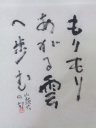 もりもり
あがる雲
へ歩む